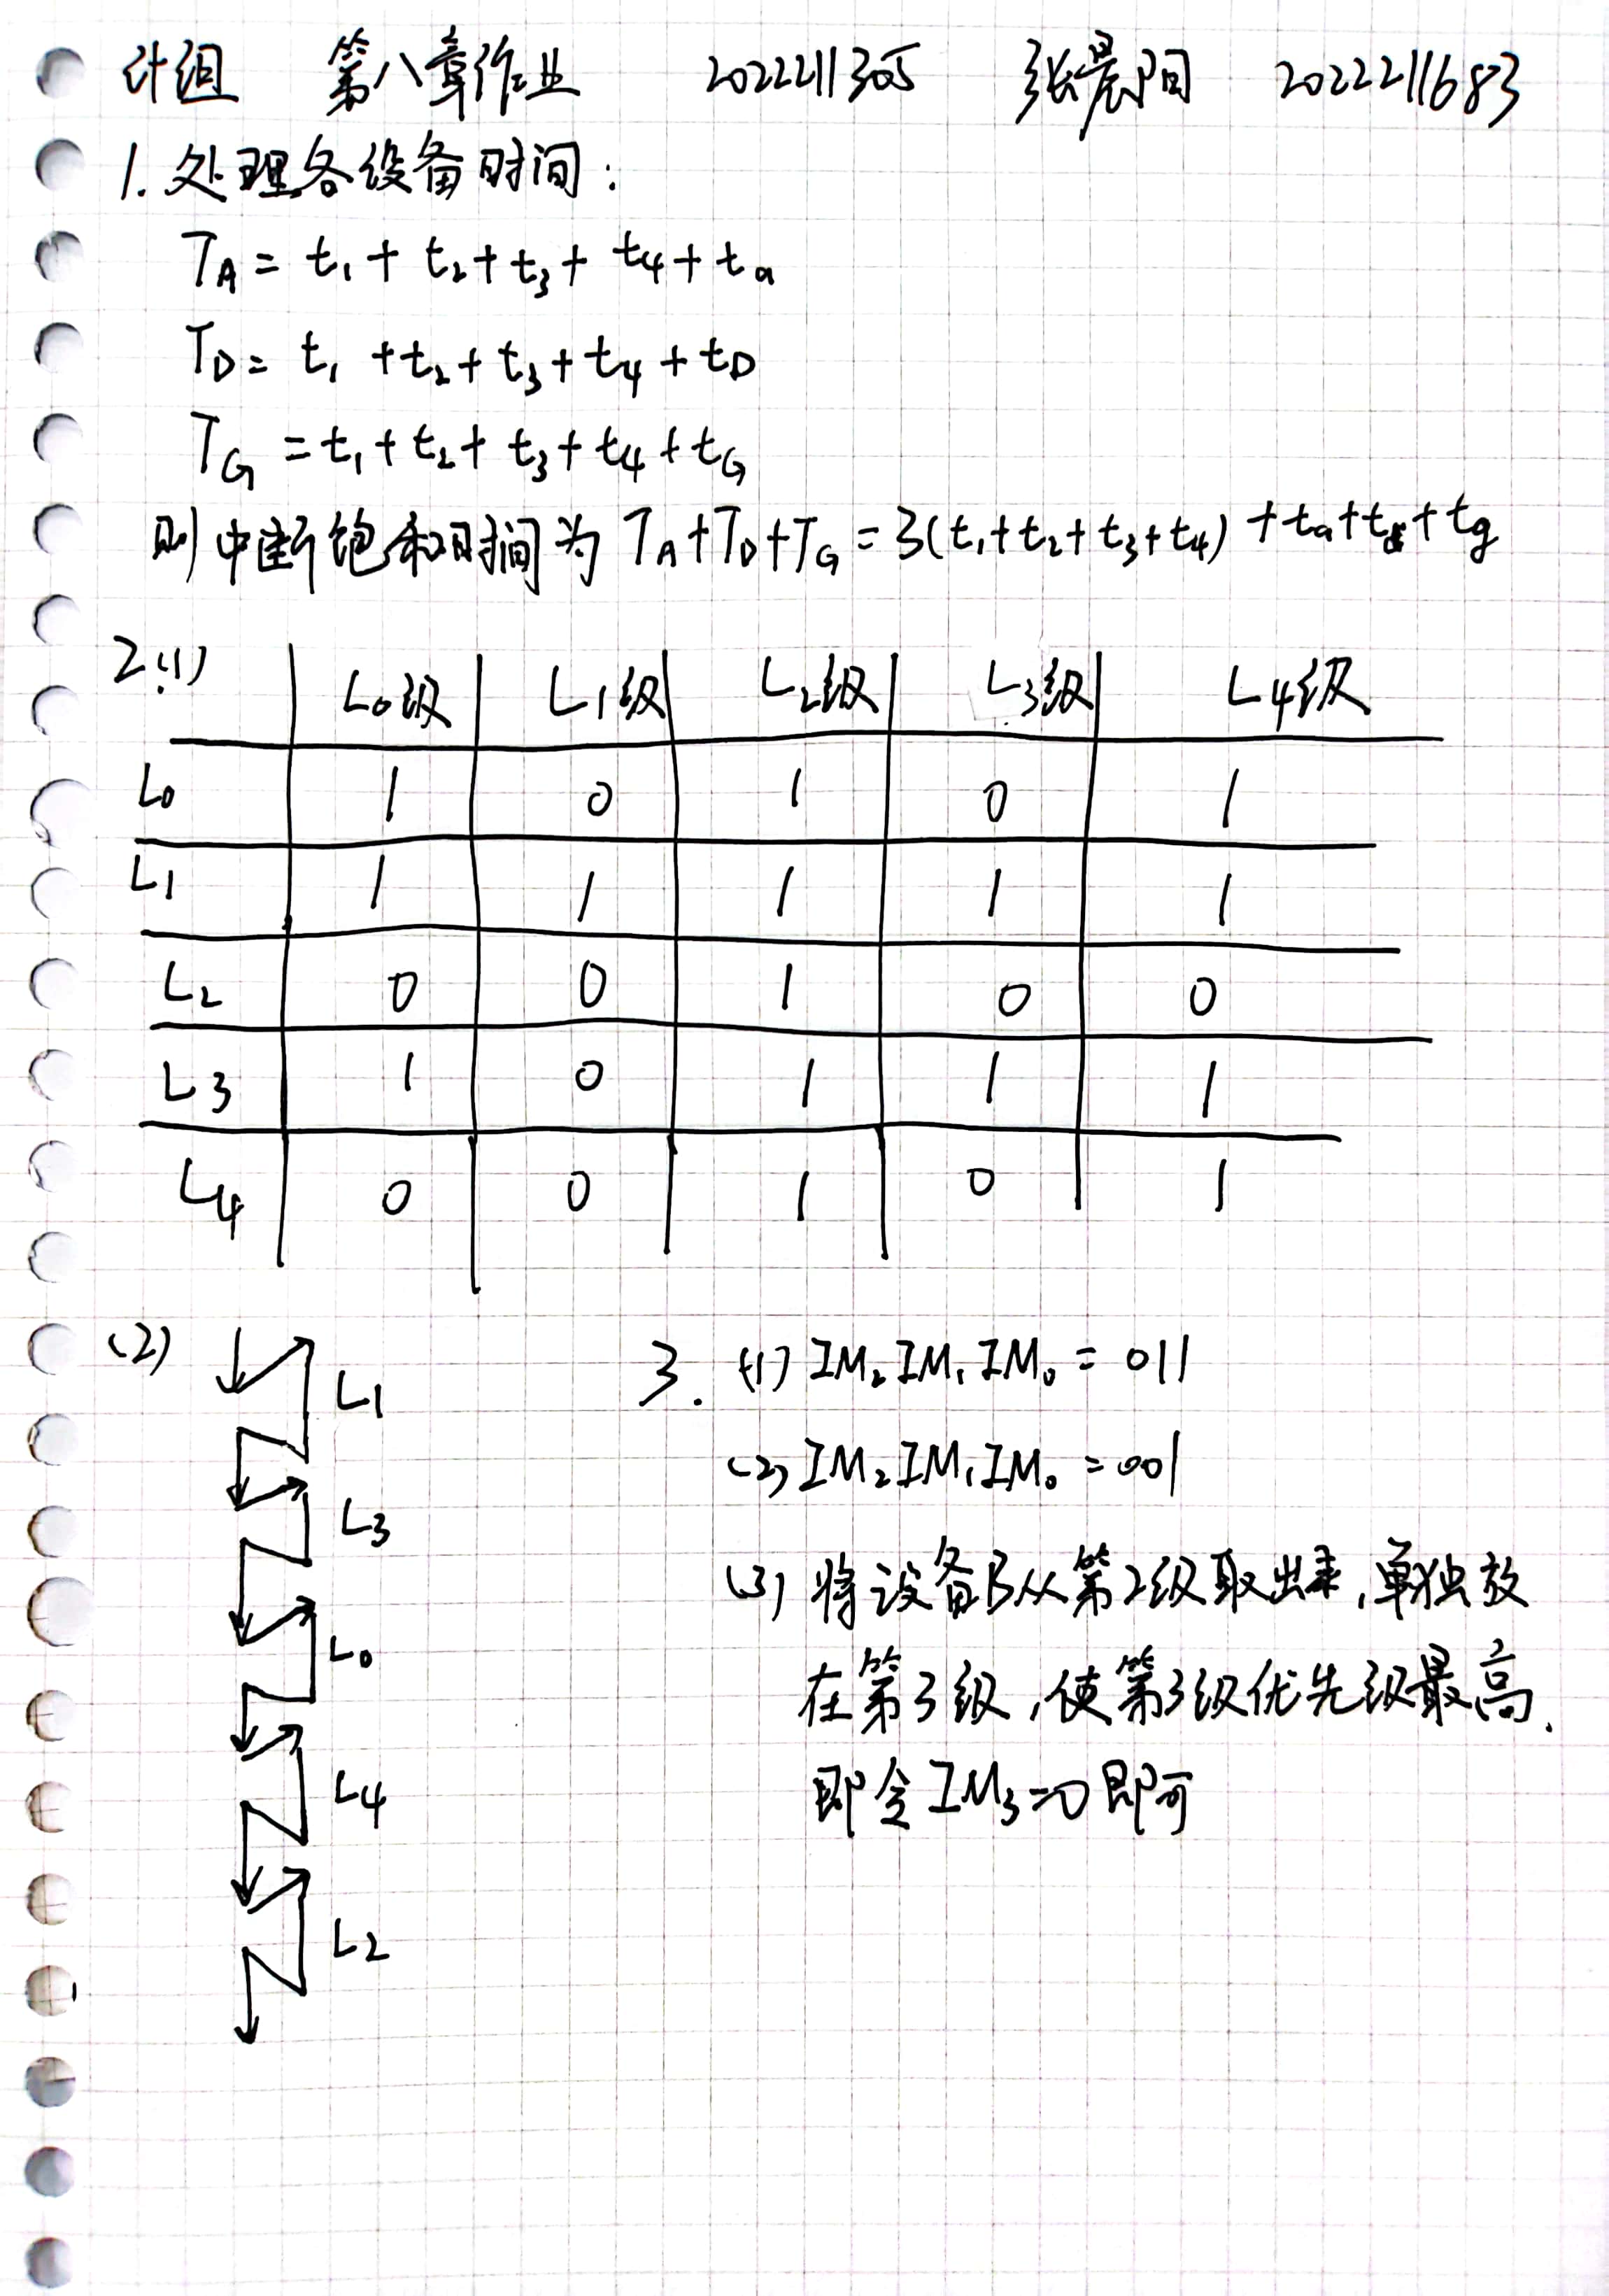 计组 第八章作业 2022211305 张晨阳 2022211683
1. 处理各设备时间:
T_A = t₁ + t₂ + t₃ + t₄ + t_a
T_D = t₁ + t₂ + t₃ + t₄ + t_D
T_G = t₁ + t₂ + t₃ + t₄ + t_G
则中断饱和时间为 T_A + T_D + T_G = 3(t₁ + t₂ + t₃ + t₄) + t_a + t_d + t_g
2.(1) L₀级 L₁级 L₂级 L₃级 L₄级
L₀ 1 0 1 0 1
L₁ 1 1 1 1 1
L₂ 0 0 1 0 0
L₃ 1 0 1 1 1
L₄ 0 0 1 0 1
(2)
L₁
L₃
L₀
L₄
L₂
3. (1) IM₂IM₁IM₀ = 011
(2) IM₂IM₁IM₀ = 001
(3) 将设备B从第2级取出来,单独放
在第3级,使第3级优先级最高.
即令IM₃=0即可